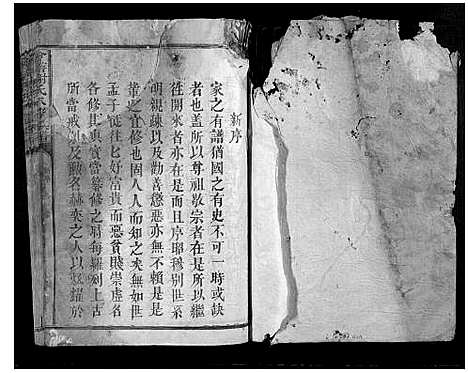 新序
家之有譜猶國之有史不可一時或缺
者也盖所以尊祖敬宗者在是所以繼
徃開來者亦在是而且序昭穆别世系
明親疎以及勸善懲惡亦無不賴是是
譜宜修也固人人而知之矣無如世
孟子徒往匕好富貴而惡貧賤崇虚名
各修其真實當纂修之時每羅列上古
所當戒 及勲名赫奕之人以 耀於